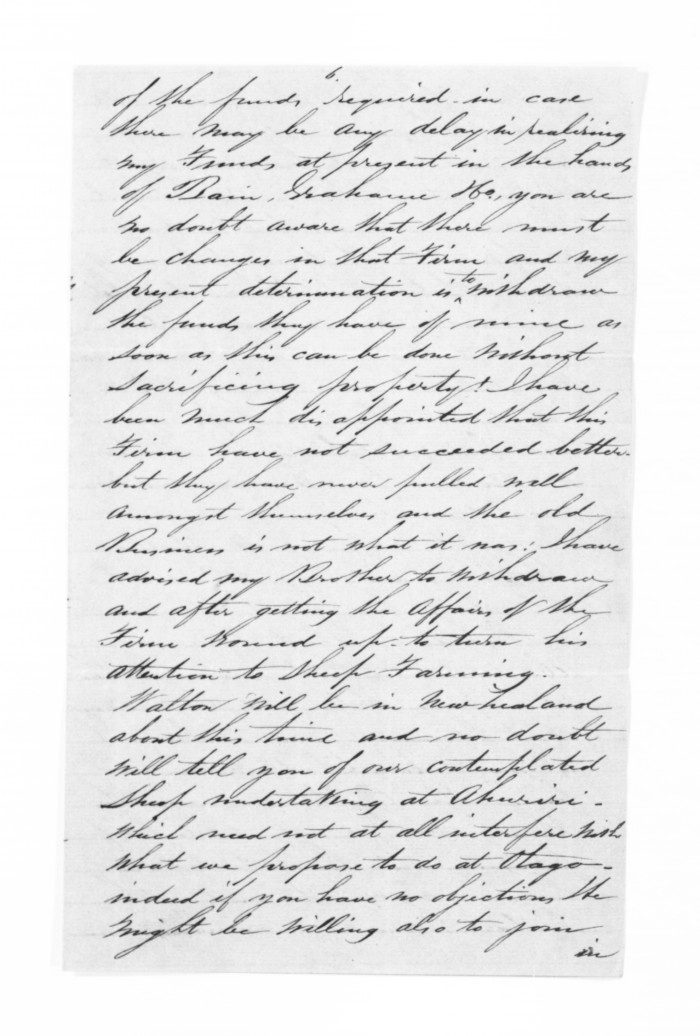 6.
of the funds required in case
there may be any delay in realizing
my Funds at present in the hands
of Bain, Grahame &Co., you are
no doubt aware that there must
be changes in that Firm and my
present determination is to withdraw
the funds they have of mine as
soon as this can be done without
sacrificing property. I have
been much disappointed that this
Firm have not succeeded better.
but they have never pulled well
amongst themselves and the old
Business is not what it was: I have
advised my Brother to withdraw
and after getting the affairs of the
Firm wound up to turn his
attention to Sheep Farming.
Walton will be in New Zealand
about this time and no doubt
will tell you of our contemplated
Sheep undertaking at Ahuriri -
which need not at all interfere with
what we propose to do at Otago -
indeed if you have no objections He
might be willing also to join
in